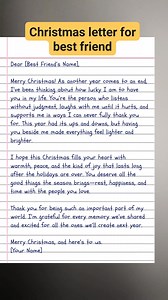 Christmas letter for
best friend
Dear [Best Friend's Name],
Merry Christmas! As another year comes to an end,
I've been thinking about how lucky I am to have
you in my life. You're the person who listens
without judgment, laughs with me until it hurts, and
supports me in ways I can never fully thank you
for. This year had its ups and downs, but having
you beside me made everything feel lighter and
brighter.
I hope this Christmas fills your heart with
warmth, peace, and the kind of joy that lasts long
after the holidays are over. You deserve all the
good things the season brings—rest, happiness, and
time with the people you love.
Thank you for being such an important part of my
world. I'm grateful for every memory we've shared
and excited for all the ones we'll create next year.
Merry Christmas, and here's to us.
[Your Name]